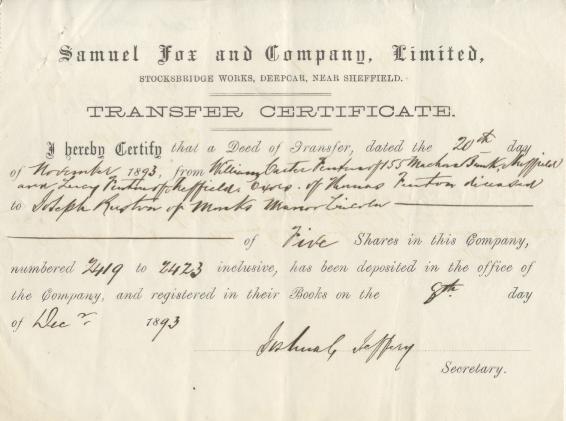 Samuel Fox and Company, Limited,
STOCKSBRIDGE WORKS, DEEPCAR, NEAR SHEFFIELD.
TRANSFER CERTIFICATE.
I hereby Certify that a Deed of Transfer, dated the 20th day
of November 1893, from William Carter Fenton of 155 Machon Bank, Sheffield
and Lucy Fenton of Sheffield, Exors. of Thomas Fenton diceased
to Joseph Ruston of Monks Manor Lincoln
of Five Shares in this Company,
numbered 2419 to 2423 inclusive, has been deposited in the office of
the Company, and registered in their Books on the 8th day
of Decr. 1893
Joshua Jeffery
Secretary.